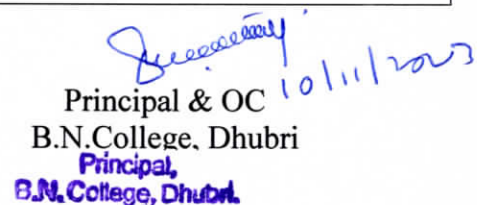 10/11/2023
Principal & OC
B.N.College, Dhubri
Principal,
B.N. College, Dhubri.